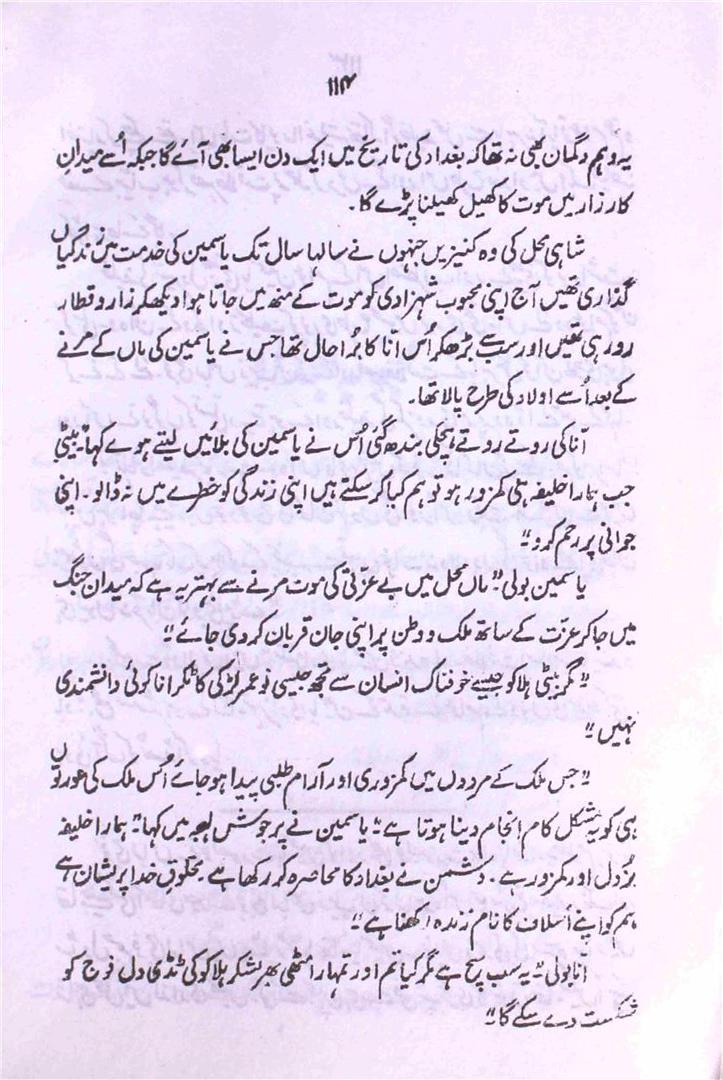 ۱۱۴
یہ وہم و گمان بھی نہ تھا کہ بغداد کی تاریخ میں ایک دن ایسا بھی آئے گا جبکہ اُسے میدانِ
کارزار میں موت کا کھیل کھیلنا پڑے گا۔
شاہی محل کی وہ کنیزیں جنہوں نے سالہا سال تک یاسمین کی خدمت میں زندگیاں
گذاری تھیں آج اپنی محبوب شہزادی کو موت کے منھ میں جاتا ہوا دیکھکر زار و قطار
رو رہی تھیں اور سب سے بڑھکر اُس انا کا بُرا حال تھا جس نے یاسمین کی ماں کے مرنے
کے بعد اُسے اولاد کی طرح پالا تھا۔
اَنّا کی روتے روتے ہچکی بندھ گئی اُس نے یاسمین کی بلائیں لیتے ہوے کہا۔ "بیٹی
جب ہمارا خلیفہ ہی کمزور ہو تو ہم کیا کر سکتے ہیں اپنی زندگی کو خطرے میں نہ ڈالو۔ اپنی
جوانی پر رحم کرو"
یاسمین بولی "ماں محل میں بے عزتی کی موت مرنے سے بہتر یہ ہے کہ میدان جنگ
میں جا کر عزّت کے ساتھ ملک و وطن پر اپنی جان قربان کر دی جائے"
"مگر بیٹی ہلاکو جیسے خوفناک انسان سے تجھ جیسی نو عمر لڑکی کا ٹکرانا کوئی دانشمندی
نہیں"
"جس ملک کے مردوں میں کمزوری اور آرام طلبی پیدا ہو جائے اُس ملک کی عورتوں
ہی کو یہ مشکل کام انجام دینا ہوتا ہے" یاسمین نے پر جوش لہجہ میں کہا "ہمارا خلیفہ
بزدل اور کمزور ہے۔ دشمن نے بغداد کا محاصرہ کر رکھا ہے مخلوقِ خدا پریشان ہے
ہم کو اپنے اَسلاف کا نام زندہ رکھنا ہے"
اَنّا بولی "یہ سب سچ ہے مگر کیا تم اور تمہارا مٹھی بھر لشکر ہلاکو کی ٹڈی دل فوج کو
شکست دے سکے گا"